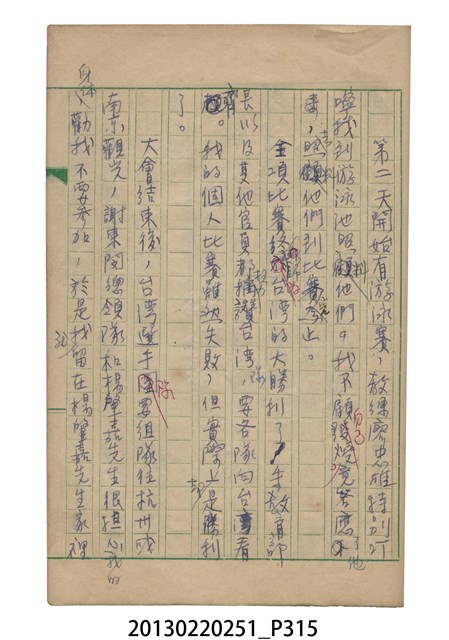 第二天開始有游泳賽，教練廖忠雄特別叮
嚀我到游泳池照料他們。我不顧自己發燒答應了他
，照料他們到比賽完。
全項比賽終於台灣的大勝利了，教育部
長以及其他官員都稱讚台灣，要各隊向台灣看
齊。我的個人比賽雖然失敗，但實際上是勝利
了。
大會結束後，台湾選手隊要組隊往杭州或
南京觀光，謝東閔總領隊和楊肇嘉先生很担心我的
身体，勸我不要参加，於是我留在楊肇嘉先生家裡
20130220251_P315